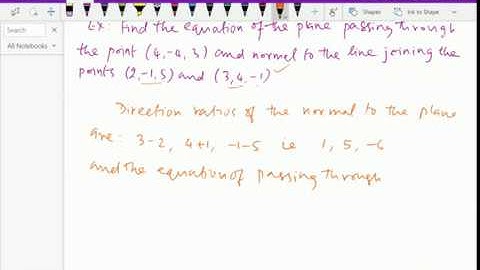 Shapes
Ink to Shape
Search
All Notebooks
Ex: Find the equation of the plane passing through
the point (4,-4,3) and normal to the line joining the
points (2,-1,5) and (3,4,-1)
Direction ratios of the normal to the plane
are: 3-2, 4+1, -1-5 ie 1, 5, -6
and the equation of passing through